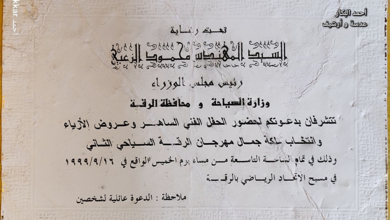 أحمد البكار
عدسة و أرشيف
تحت رعاية
السيد المهندس محمود الزعبي
رئيس مجلس الوزراء
وزارة السياحة و محافظة الرقة
تتشرفان بدعوتكم لحضور الحفل الفني الساهر وعروض الأزياء
وانتخاب ملكة جمال مهرجان الرقة السياحي الثاني
وذلك في تمام الساعة التاسعة من مساء يوم الخميس الواقع في ١٩٩٩/٩/١٦
في مسبح الاتحاد الرياضي بالرقة
ملاحظة : الدعوة عائلية لشخصين